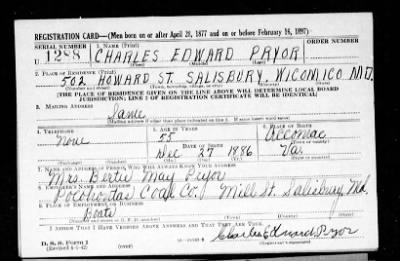 REGISTRATION CARD—(Men born on or after April 28, 1877 and on or before February 16, 1897)
SERIAL NUMBER 1. NAME (Print) ORDER NUMBER
U 1288 CHARLES EDWARD PRYOR
(First) (Middle) (Last)
2. PLACE OF RESIDENCE (Print)
502 HOWARD ST. SALISBURY, WICOMICO MD.
(Number and street) (Town, township, village, or city) (County) (State)
[THE PLACE OF RESIDENCE GIVEN ON THE LINE ABOVE WILL DETERMINE LOCAL BOARD
JURISDICTION; LINE 2 OF REGISTRATION CERTIFICATE WILL BE IDENTICAL]
3. MAILING ADDRESS
Same
[Mailing address if other than place indicated on line 2. If same insert word same]
4. TELEPHONE 5. AGE IN YEARS 6. PLACE OF BIRTH
None 55 Accomac
DATE OF BIRTH (Town or county)
Dec 27 1886 Va.
(Mo.) (Day) (Yr.) (State or country)
7. NAME AND ADDRESS OF PERSON WHO WILL ALWAYS KNOW YOUR ADDRESS
Mrs. Bertie May Pryor
8. EMPLOYER'S NAME AND ADDRESS
Pocohontas Coal Co. Mill St. Salisbury Md.
9. PLACE OF EMPLOYMENT OR BUSINESS
Boate
(Number and street or R. F. D. number) (Town) (County) (State)
I AFFIRM THAT I HAVE VERIFIED ABOVE ANSWERS AND THAT THEY ARE TRUE.
D. S. S. FORM 1
(Revised 4-1-42) (over)
Charles Edward Pryor